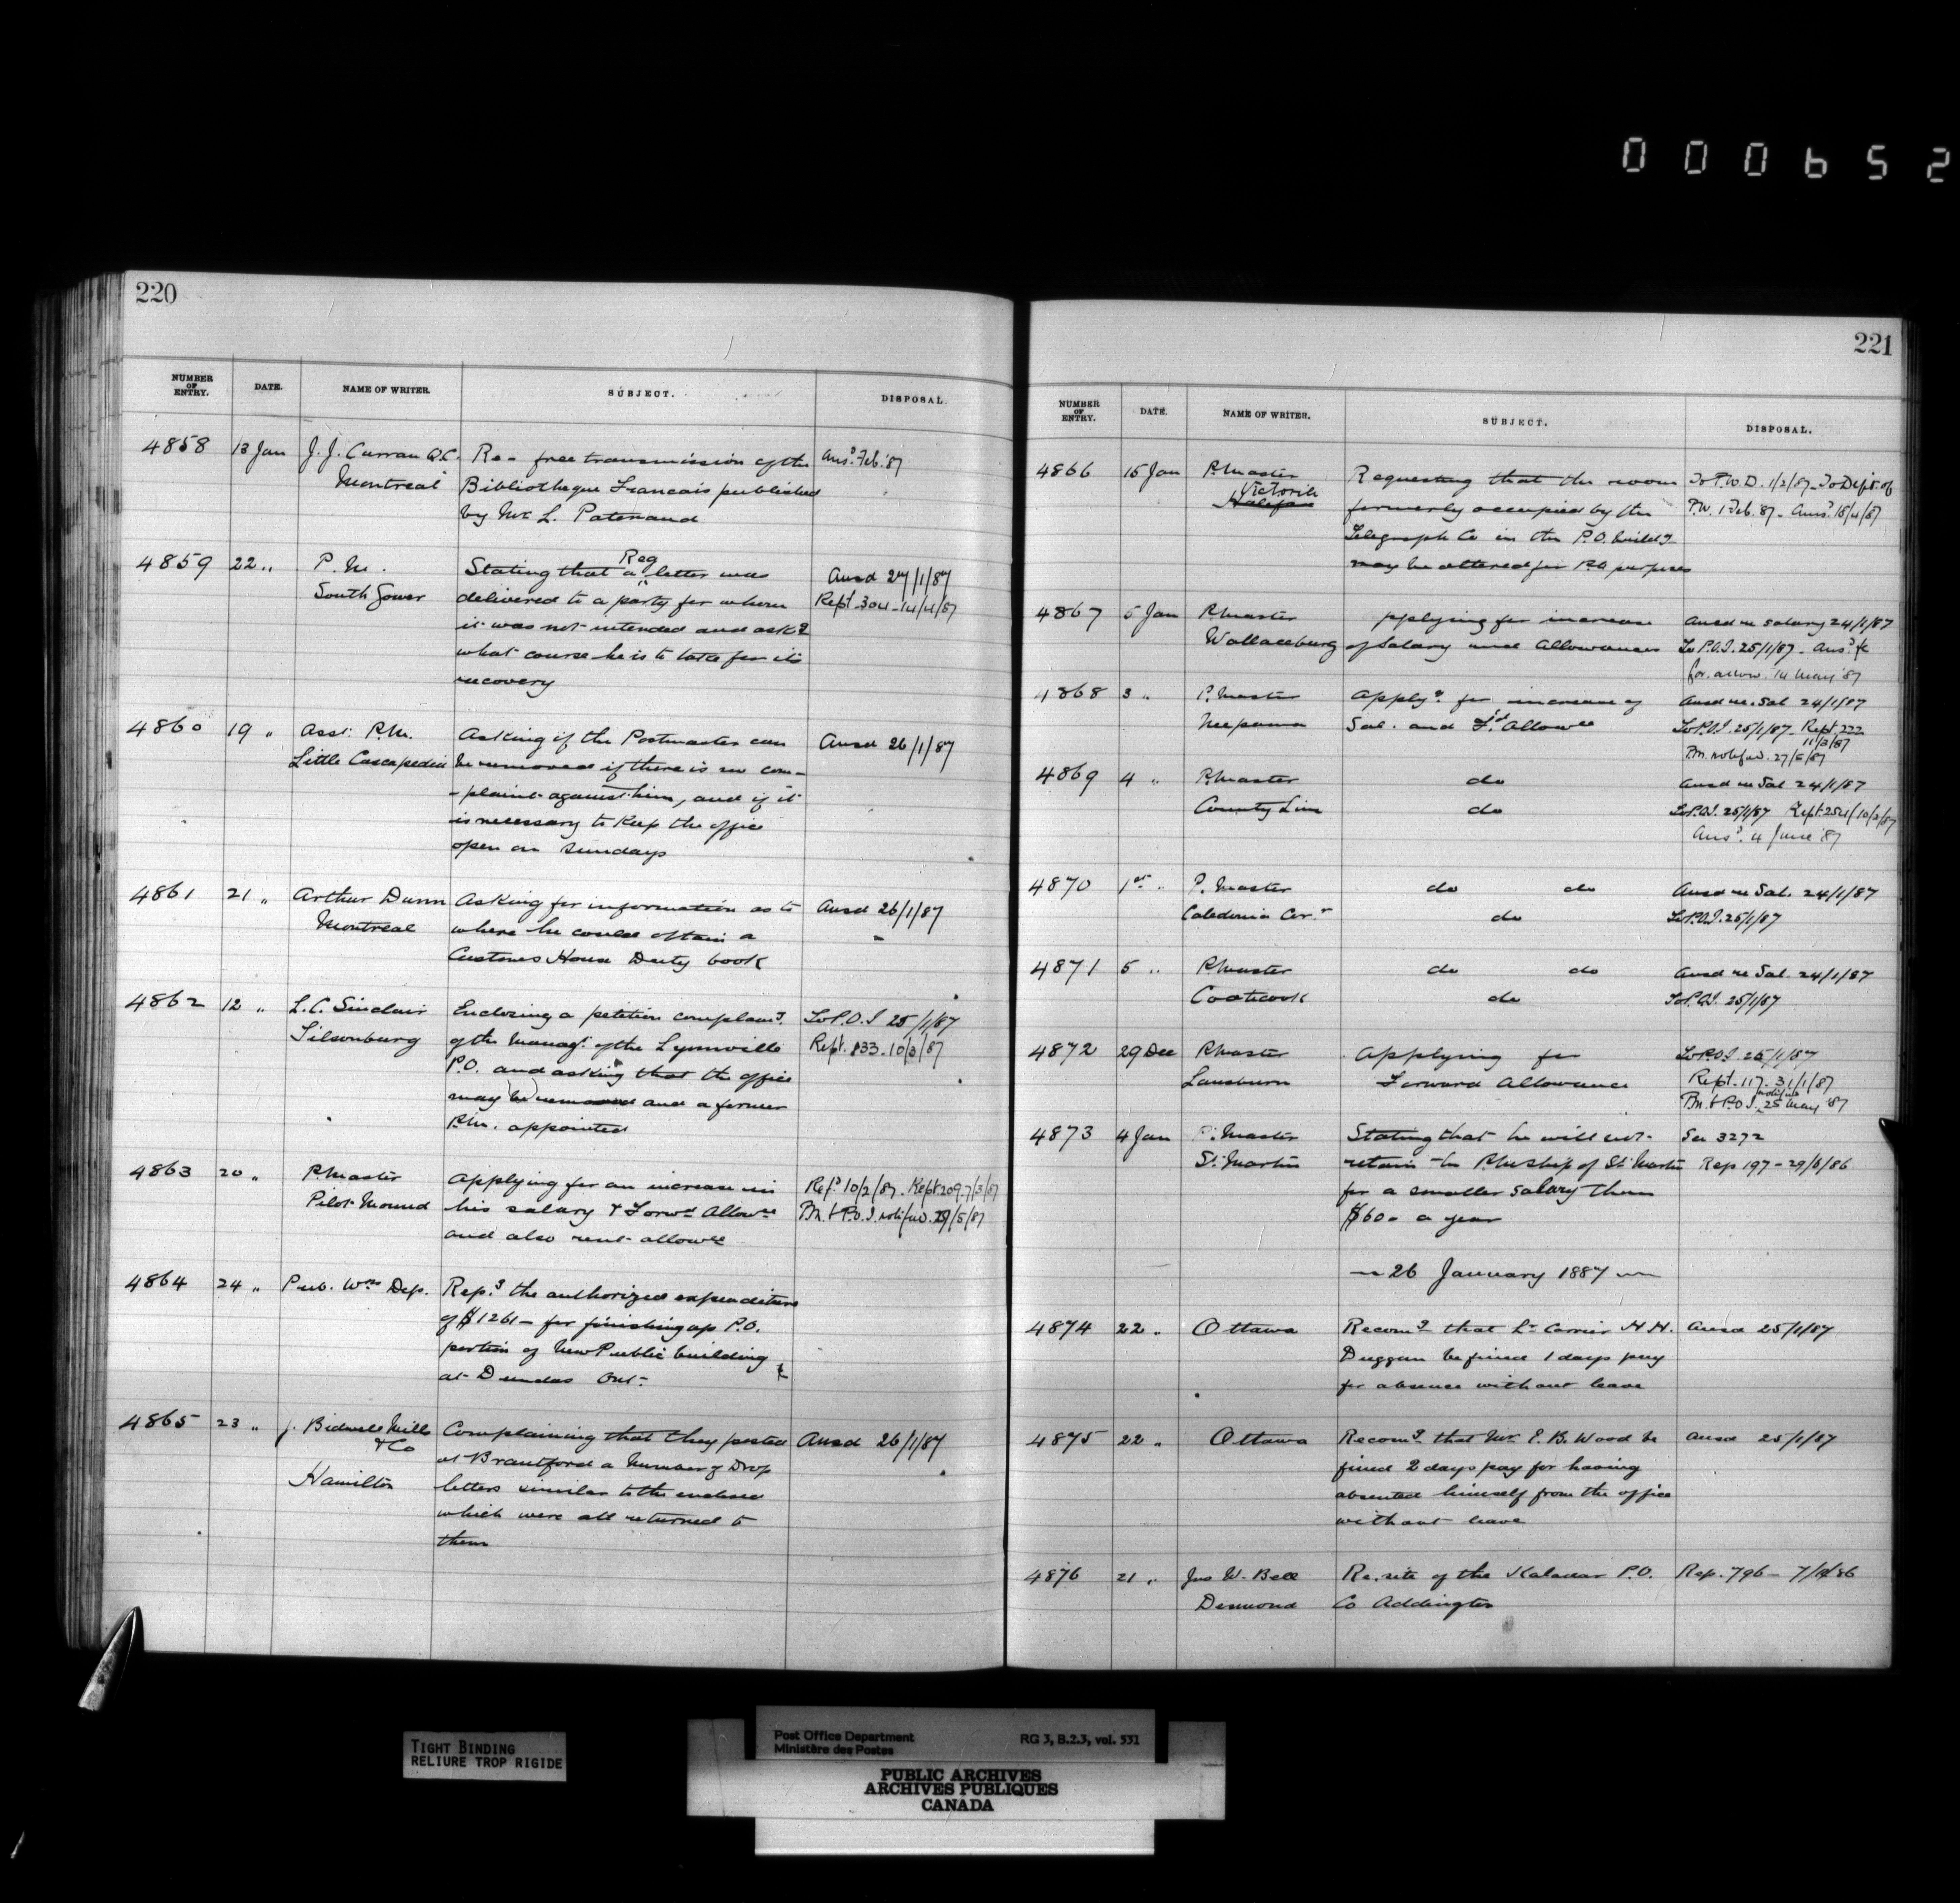 000652
220
NUMBER OF ENTRY. DATE. NAME OF WRITER. SUBJECT. DISPOSAL.
4858 13 Jan J. J. Curran Q.C. Re- free transmission of the Ansd. Feb. '87
Montreal Bibliotheque Francais published
by Mr. L. Patenaud
4859 22 " P. M. Stating that a Reg letter was Ansd 27/1/87
South Gower delivered to a party for whom Rept 304-14/4/87
it was not intended and askg
what course he is to take for its
recovery
4860 19 " Asst. P.M. Asking if the Postmaster can Ansd 26/1/87
Little Cascapedia be removed if there is no com-
-plaint against him, and if it
is necessary to keep the office
open on Sundays
4861 21 " Arthur Dunn Asking for information as to Ansd 26/1/87
Montreal where he could obtain a
Customs House Duty book
4862 12 " L. C. Sinclair Enclosing a petition complaing. To P.O.I 25/1/87
Tilsonburg of the managt. of the Lynnville Rept. 133-10/2/87
P.O. and asking that the office
may be removed and a former
P.M. appointed
4863 20 " P.master Applying for an increase in Refd 10/2/87. Rept. 209-7/3/87
Pilot Mound his salary & Forwd Allowce P.M. & P.O.I. notified. 27/5/87
and also rent allowce
4864 24 " Pub. Wks Dep. Repg the authorized expenditure
of $1261- for finishing up P.O.
portion of New Public building
at Dundas Ont-
4865 23 " J. Bidwell Mills Complaining that they posted Ansd 26/1/87
& Co at Brantford a Number of Drop
Hamilton letters similar to the enclosed
which were all returned to
them
221
NUMBER OF ENTRY. DATE. NAME OF WRITER. SUBJECT. DISPOSAL.
4866 15 Jan P.master Requesting that the room To P.W.D. 1/2/87- To Dept. of
Victoria formerly occupied by the P.W. 1 Feb. 87- Ansd. 18/4/87
Halifax Telegraph Co in the P.O. buildg
may be altered for P.O. purposes
4867 5 Jan P.master applying for increase Ansd re salary 24/1/87
Wallaceburg of Salary and Allowances To P.O.I. 25/1/87- Ansd.
for. allow. 14 May '87
4868 3 " P.master Applyg for increase of Ansd re. Sal 24/1/87
Neepawa Sal. and Fd Allowce To P.O.I. 25/1/87 Rept. 222
11/3/87
P.M. notified. 27/5/87
4869 4 " P.master do Ansd re Sal 24/1/87
County Line do To P.O.I. 25/1/87 Rept 254/10/3/87
Ansd. 4 June '87
4870 1st " P. Master do do Ansd re Sal. 24/1/87
Caledonia Cor.s do To P.O.I. 25/1/87
4871 5 " P.master do do Ansd re Sal. 24/1/87
Coaticook do To P.O.I. 25/1/87
4872 29 Dec P.master Applying for To P.O.I. 25/1/87
Lansdown Forward Allowance Rept. 117- 31/1/87
P.M. & P.O.I. notified 25 May '87
4873 4 Jan P. Master Stating that he will not- See 3272
St. Martin retain the PMship of St. Martin Rep 197-29/6/86
for a smaller salary than
$60- a year
26 January 1887
4874 22 " Ottawa Recomg that Lr Carrier H.H. Ansd 25/1/87
Duggan be fined 1 days pay
for absence without leave
4875 22 " Ottawa Recomg that Mr. P. B. Wood be Ansd 25/1/87
fined 2 days pay for having
absented himself from the office
without leave
4876 21 " Jno W. Bell Re. site of the Kaladar P.O. Rep. 796-
Desmond Co Addington
TIGHT BINDING
RELIURE TROP RIGIDE
Post Office Department RG 3, B.2.3, vol. 531
Ministère des Postes
PUBLIC ARCHIVES
ARCHIVES PUBLIQUES
CANADA